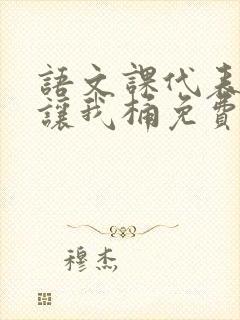 語文課代表
讓我桶免費
穆杰